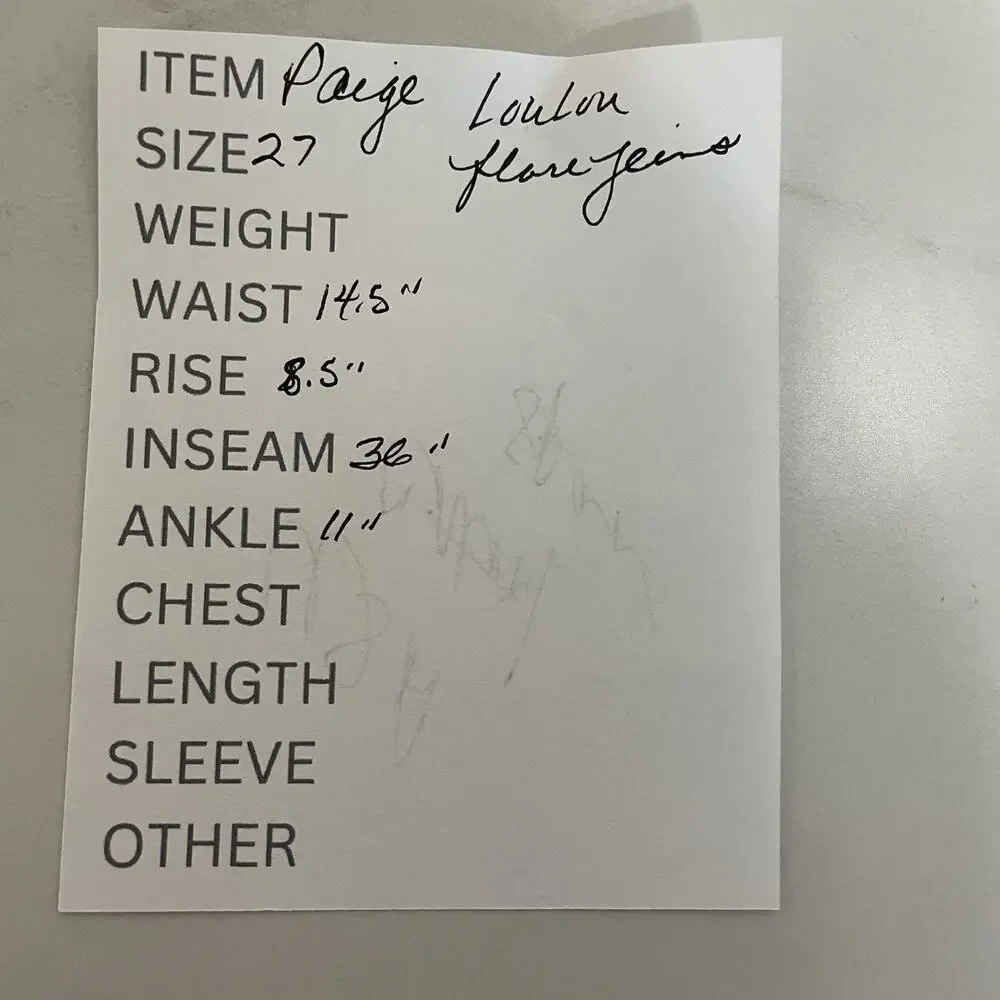 ITEM Paige LouLou
flare jeans
SIZE 27
WEIGHT
WAIST 14.5"
RISE 8.5"
INSEAM 36"
ANKLE 11"
CHEST
LENGTH
SLEEVE
OTHER